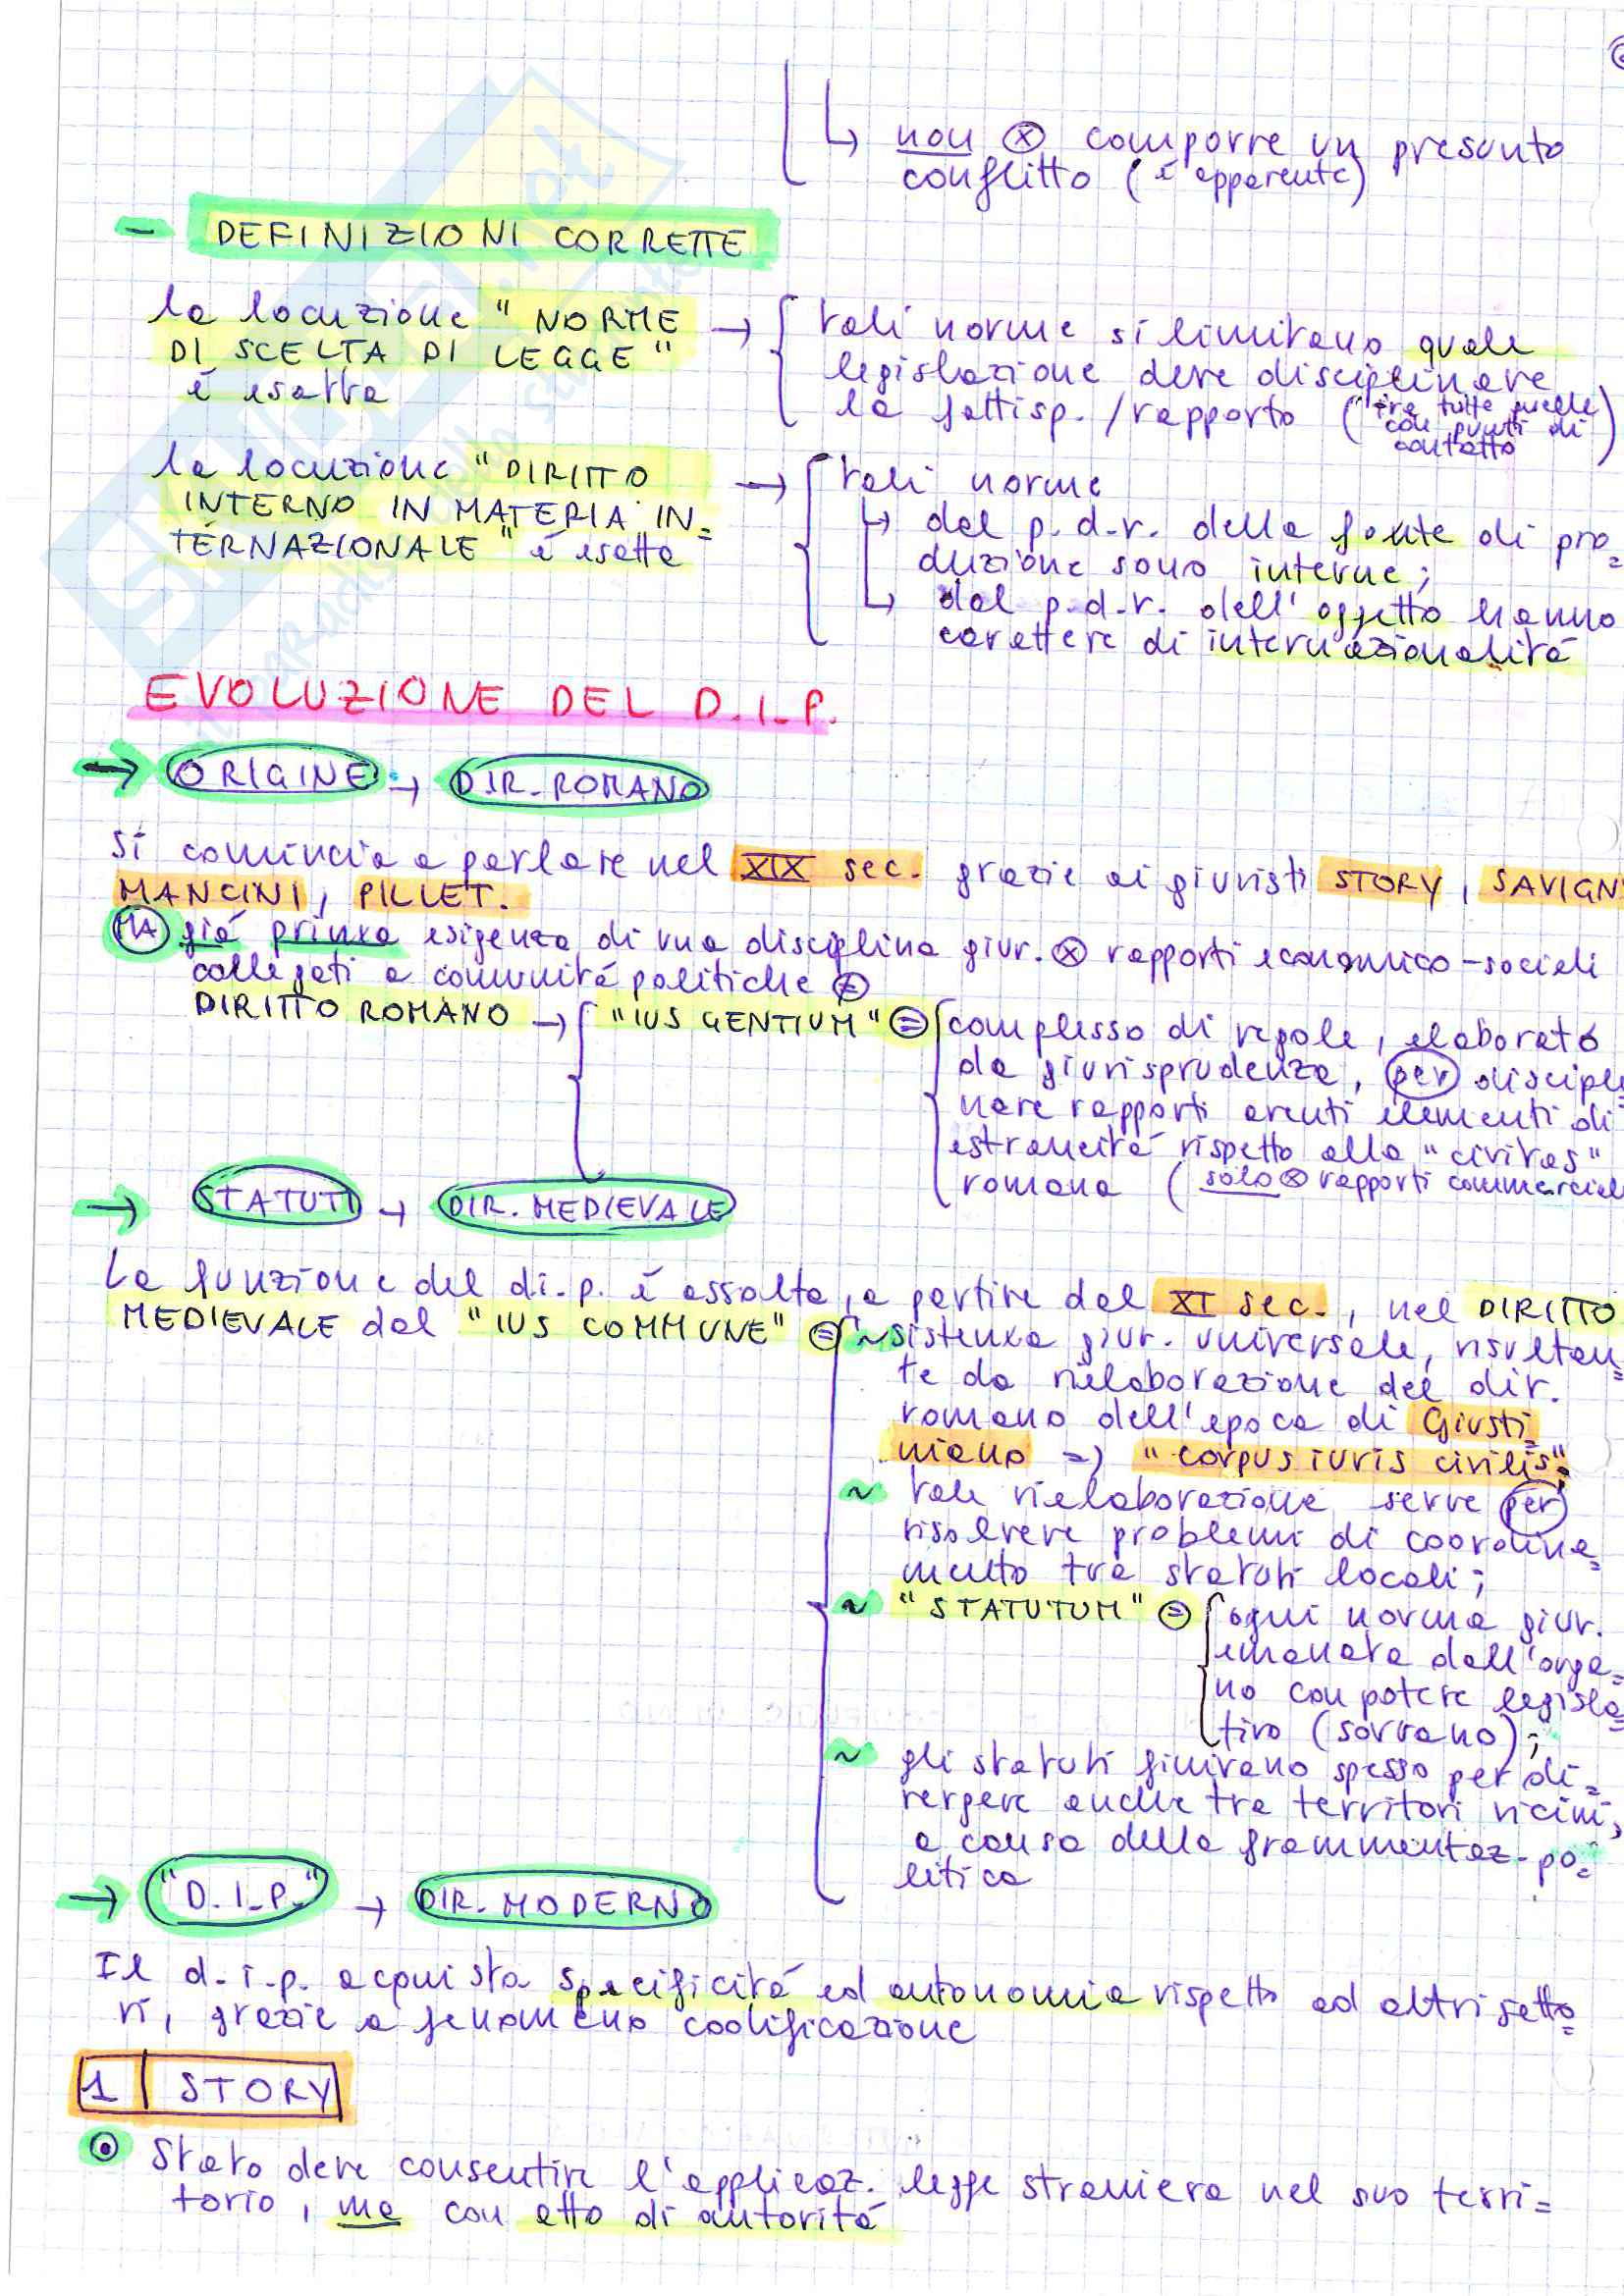 non ⊗ comporre un presunto
conflitto (è apparente)
- DEFINIZIONI CORRETTE
la locuzione "NORME
DI SCELTA DI LEGGE"
è esatta
→ tali norme si limitano quale
legislazione deve disciplinare
la fattisp./rapporto (tra tutte quelle
con punti di
contatto)
la locuzione "DIRITTO
INTERNO IN MATERIA IN=
TERNAZIONALE" è esatta
→ tali norme
↳ dal p.d.v. della fonte di pro=
duzione sono interne;
↳ dal p.d.v. dell'oggetto hanno
carattere di internazionalità
EVOLUZIONE DEL D.I.P.
→ ORIGINE → DIR. ROMANO
Si comincia a parlare nel XIX sec. grazie ai giuristi STORY, SAVIGN
MANCINI, PILLET.
MA già prima esigenza di una disciplina giur. ⊗ rapporti economico-sociali
collegati a comunità politiche ≠
DIRITTO ROMANO → "IUS GENTIUM" = complesso di regole, elaborato
da giurisprudenza, per discipli
nare rapporti aventi elementi di
estraneità rispetto alla "civitas"
romana (solo ⊗ rapporti commercial
→ STATUTI → DIR. MEDIEVALE
La funzione del d.i.p. è assolta, a partire dal XI sec., nel DIRITTO
MEDIEVALE dal "IUS COMMUNE" = ~ sistema giur. universale, risultan=
te da rielaborazione del dir.
romano dell'epoca di Giusti
niano => "corpus iuris civilis";
~ tale rielaborazione serve per
risolvere problemi di coordina=
mento tra statuti locali;
~ "STATUTUM" = ogni norma giur.
emanata dall'orga=
no con potere legisla=
tivo (sovrano);
~ gli statuti finivano spesso per di=
vergere anche tra territori vicini,
a causa della frammentaz. po=
litica
→ "D.I.P." → DIR. MODERNO
Il d.i.p. acquista specificità ed autonomia rispetto ad altri setto=
ri, grazie a fenomeno codificazione
1 | STORY
⊙ Stato deve consentire l'applicaz. legge straniera nel suo terri=
torio, ma con atto di autorità